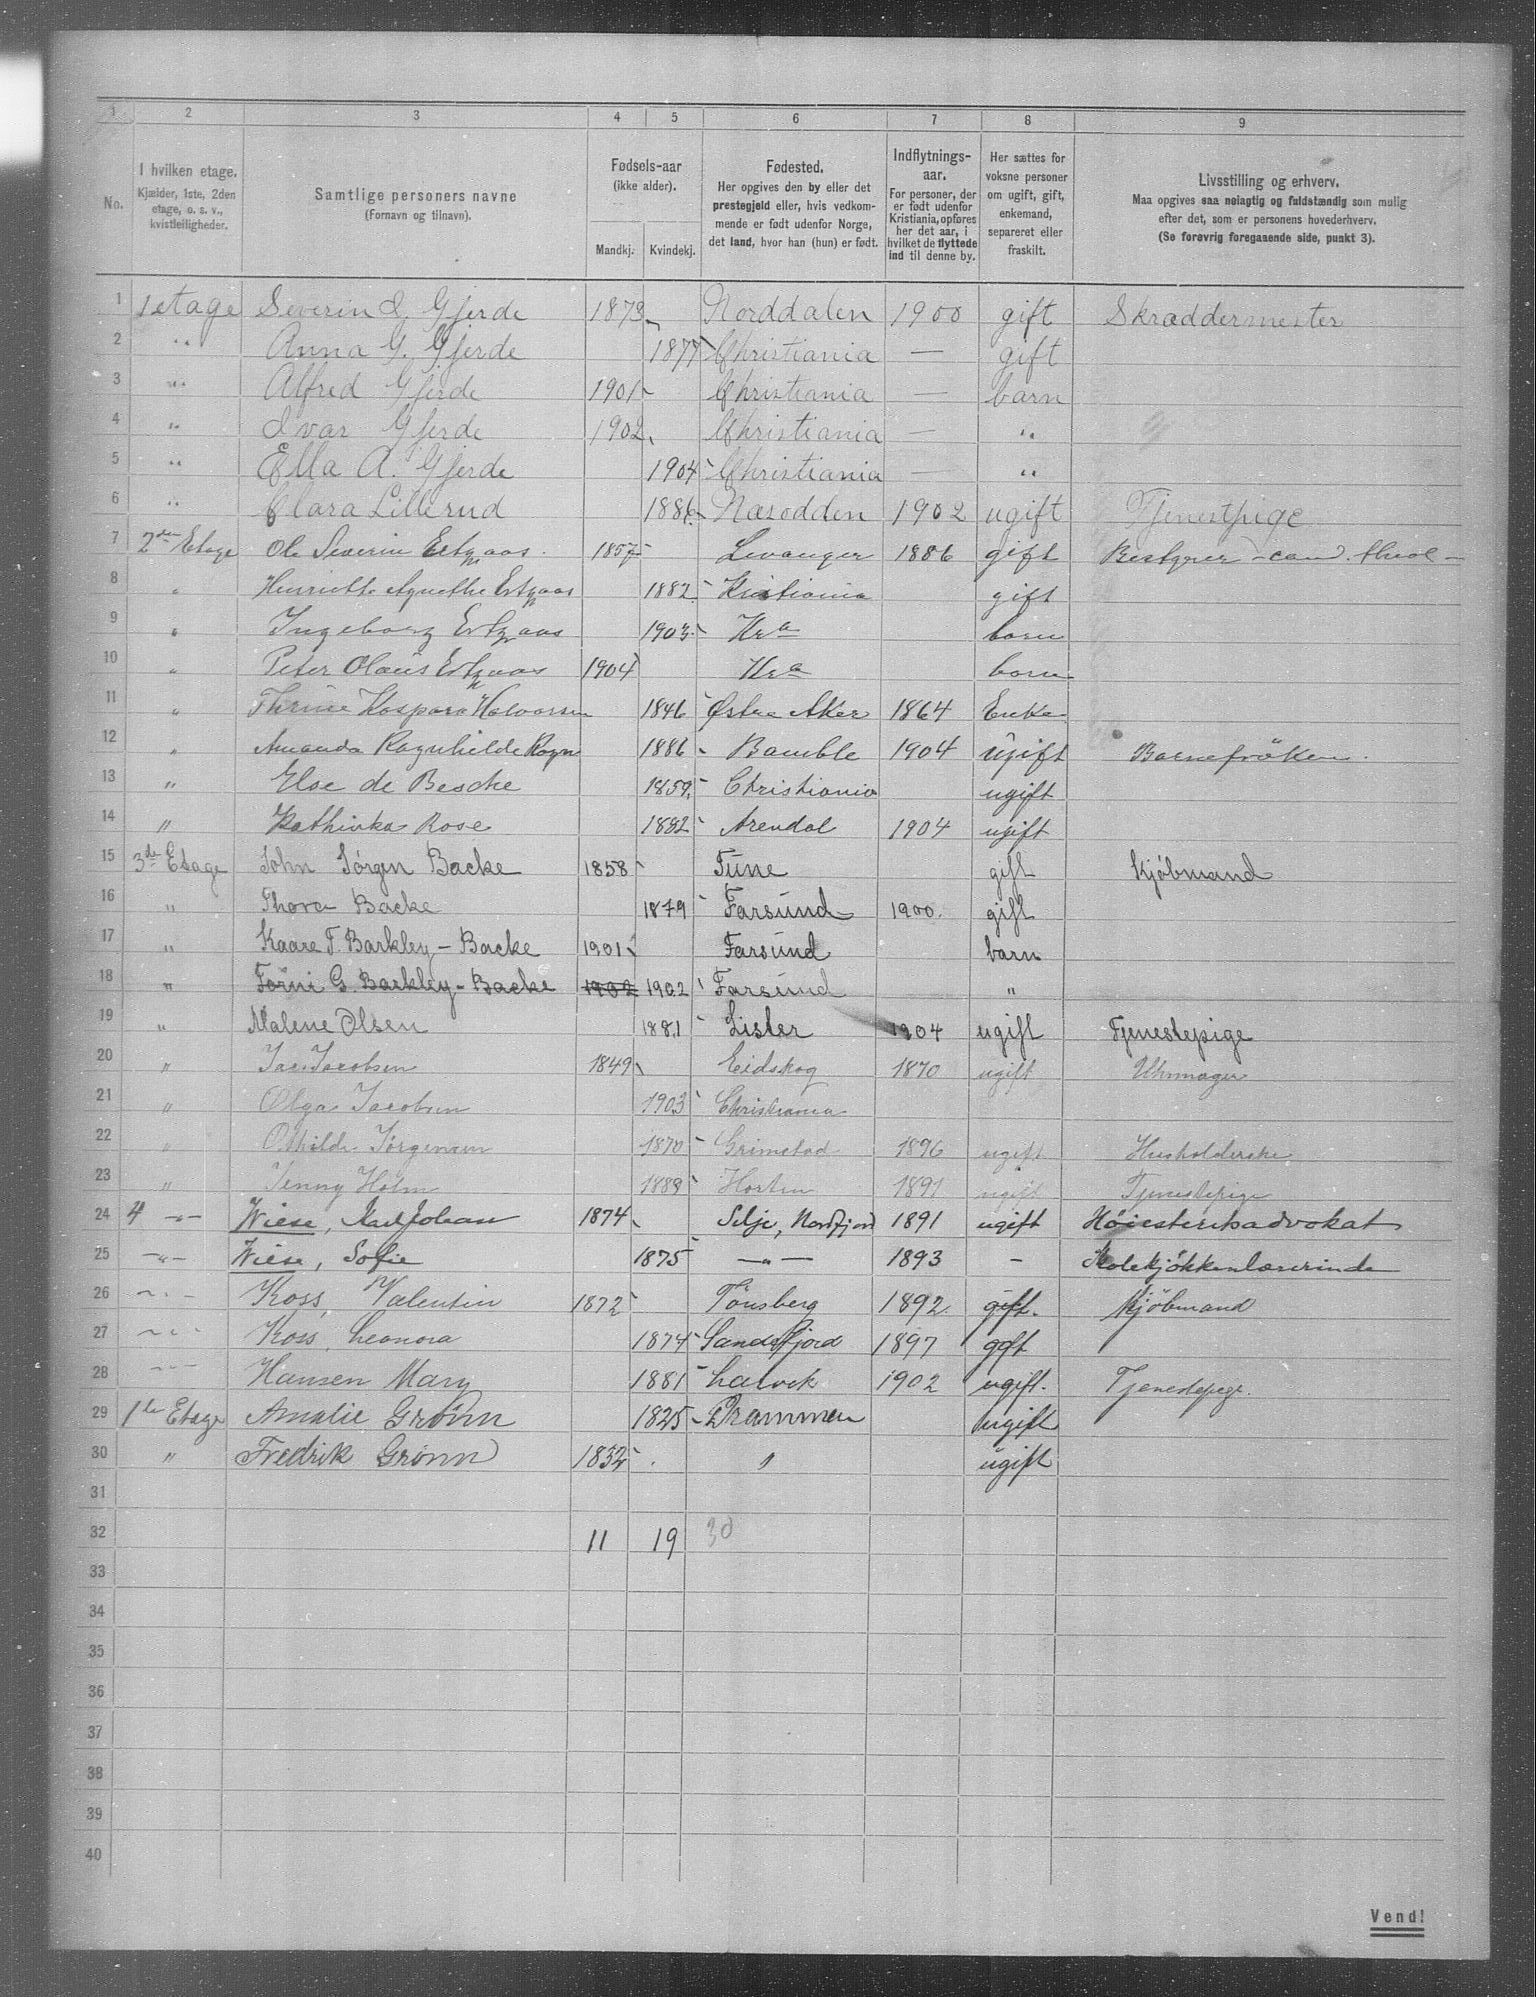 1 2 3 4 5 6 7 8 9
No. | I hvilken etage. Kjælder, 1ste, 2den etage, o. s. v., kvistleiligheder. | Samtlige personers navne (Fornavn og tilnavn). | Fødsels-aar (ikke alder). Mandkj. | Kvindekj. | Fødested. Her opgives den by eller det prestegjeld eller, hvis vedkommende er født udenfor Norge, det land, hvor han (hun) er født. | Indflytnings-aar. For personer, der er født udenfor Kristiania, opføres her det aar, i hvilket de flyttede ind til denne by. | Her sættes for voksne personer om ugift, gift, enkemand, separeret eller fraskilt. | Livsstilling og erhverv. Maa opgives saa nøiagtig og fuldstændig som mulig efter det, som er personens hovederhverv. (Se forøvrig foregaaende side, punkt 3).
1 1 etage Severin I. Gjerde 1873 Norddalen 1900 gift Skræddermester
2 " Anna G. Gjerde 1877 Christiania — gift
3 " Alfred Gjerde 1901 Christiania — barn
4 " Ivar Gjerde 1902 Christiania — "
5 " Ella A. Gjerde 1904 Christiania — "
6 " Clara Lillerud 1886 Næsodden 1902 ugift Tjenestpige
7 2den Etage Ole Severin Ertzaas. 1857 Levanger 1886 gift Bestyrer - cand. theol -
8 " Henriette Agnethe Ertzaas 1882 Kristiania gift
9 " Ingeborg Ertzaas 1903 Kra barn
10 " Peter Olaus Ertzaas 1904 Kra barn
11 " Kaspara Halvorsen 1846 Østre Aker 1864 Enke
12 " Amanda Ragnhilde 1886 Bamble 1904 ugift Barnefrøken.
13 " Else de Besche 1859 Christiania ugift
14 " Kathinka Rose 1882 Arendal 1904 ugift
15 3de Etage John Jørgen Backe 1858 Tune gift Kjøbmand
16 " Thora Backe 1879 Farsund 1900. gift
17 " Kaare F. Barkley - Backe 1901 Farsund barn
18 " G. Barkley - Backe 1902 1902 Farsund "
19 " Malene Olsen 1881 Lister 1904 ugift Tjenestepige
20 " Jac. Jacobsen 1849 Eidskog 1870 ugift Uhrmager
21 " Olga Jacobsen 1903 Christiania
22 " Othilde Jørgensen 1870 Grimstad 1896 ugift Husholderske
23 " Jenny Holm 1889 Horten 1891 ugift Tjenestepige
24 4 -"- Wiese, Karl Johan 1874 Selje, Nordfjord 1891 ugift Høiesteretsadvokat
25 -"- Wiese, Sofie 1875 -"- 1893 - Skolekjøkkenlærerinde
26 -"- Koss, Valentin 1872 Tønsberg 1892 gift. Kjøbmand
27 -"- Koss, Leonora 1874 Sandefjord 1897 gift
28 -"- Hansen Mary 1881 Larvik 1902 ugift. Tjenestepige.
29 1ste Etage Amalie Grønn 1825 Drammen ugift
30 " Fredrik Grønn 1832 " ugift
31
32 11 19 30
33
34
35
36
37
38
39
40
Vend!